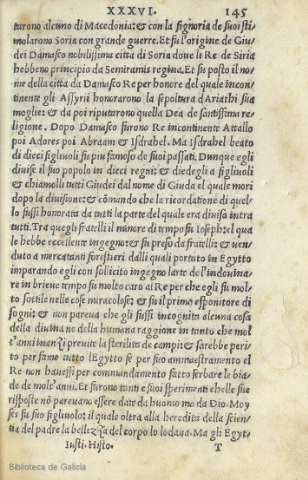 XXXVI. 145
turono alcuno di Macedonia: & con la signoria de suoi sti/
molarono Soria con grande guerre. Et fu l'origine de Giu/
dei Damasco nobilissima citta di Soria doue li Re de Siria
hebbeno principio da Semiramis regina. Et fu posto il no=
me della citta da Damasco Re per honore del quale incon/
tinente gli Assyrii honorarono la sepoltura d Ariathi sua
moglie: & da poi riputarono quella Dea de santissima re/
ligione. Dopo Damasco furono Re incontinente Attallo
poi Adores poi Abraam & Isdrahel. Ma Isdrahel beato
di dieci figliuoli fu piu famoso de suoi passati. Dunque egli
diuise il suo popolo in dieci regni: & diedegli a figliuoli
& chiamolli tutti Giudei dal nome di Giuda el quale mori
dopo la diuisone: & cōmando che la ricordatione di quel/
lo fussi honorata da tutti la parte del quale era diuisa intra
tutti. Tra quegli fratelli il minore di tempo fu Ioseph: el qua
le hebbe eccellente ingegno: & fu preso da fratelli: & uen/
duto a mercatanti forestieri dalli quali portato in Egytto
imparando egli con sollicito ingegno larte del'indouina/
re in brieue tempo fu molto caro al Re per che egli fu mol
to sottile nelle cose miracolose: & fu il primo espositore di
sogni: & non pareua che gli fussi incognita alcuna cosa
della diuina ne della humana raggione in tanto che mol
t'anni inanzi preuite la sterilita de campi: & sarebbe peri/
to per fame tutto l'Egytto se per suo ammaestramento el
Re non hauessi per commundamento fatto serbare le bia/
de de molt'anni. Et furono tanti e suoi sperimenti chelle sue
risposte nō pareuano essere date da huomo ma da Dio. Moy
ses fu suo figliuolo: il quale oltra alla heredita della scien/
tia del padre la bellezza del corpo lo lodaua. Ma gli Egyt/
Iusti. Histo. T
Biblioteca de Galicia